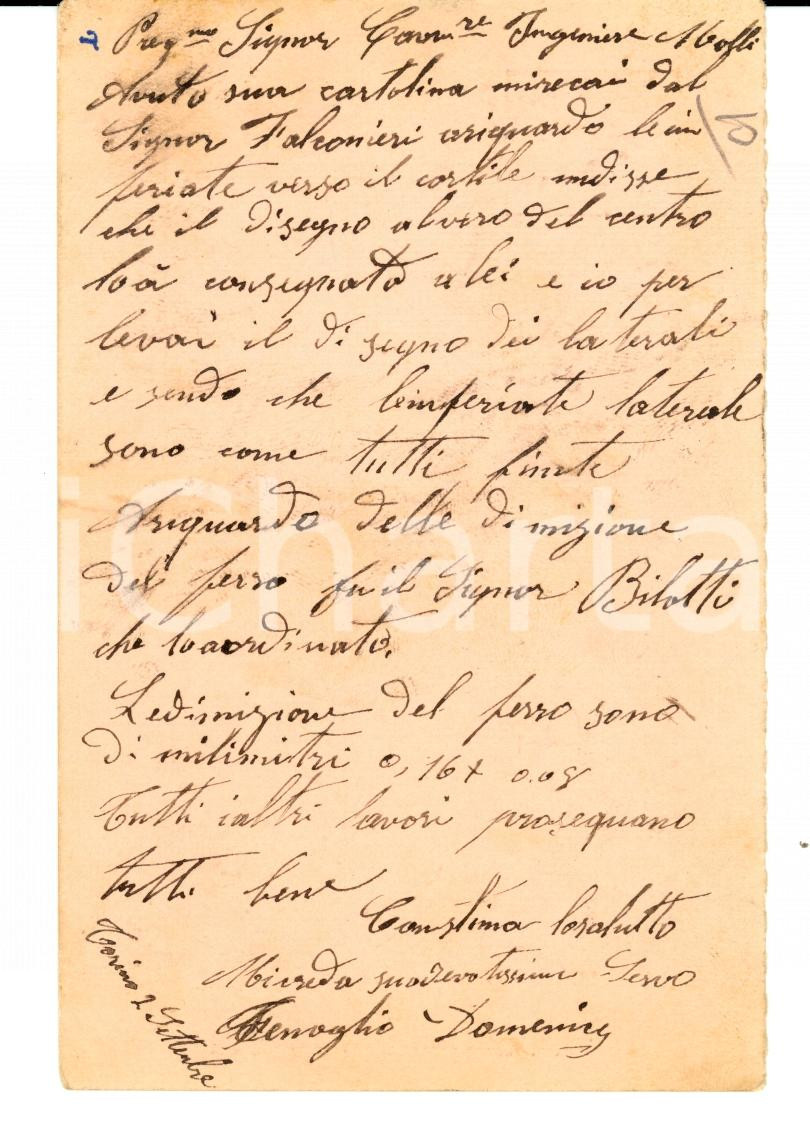 Preg.mo Signor Cavr.re Ingeniere
Avuto sua cartolina mirecai dal
Signor Falconieri ariguardo lein
feriate verso il cortile midisse
che il disegno alvero del centro
loà consegnato a lei e io per
levai il di segno dei laterali
e sendo che leinferiate laterale
sono come tutti finite
Ariguardo delle dimizione
del ferro fu il Signor Bilotti
che loaordinato.
Ledimizione del ferro sono
di milimitri 0,16 x 0.08
Tutti ialtri lavori proseguano
tutti bene
Constima losalutto
Micreda suodevotissimo Servo
Fenoglio Domenico
Torino 2 Settembre
iCharta